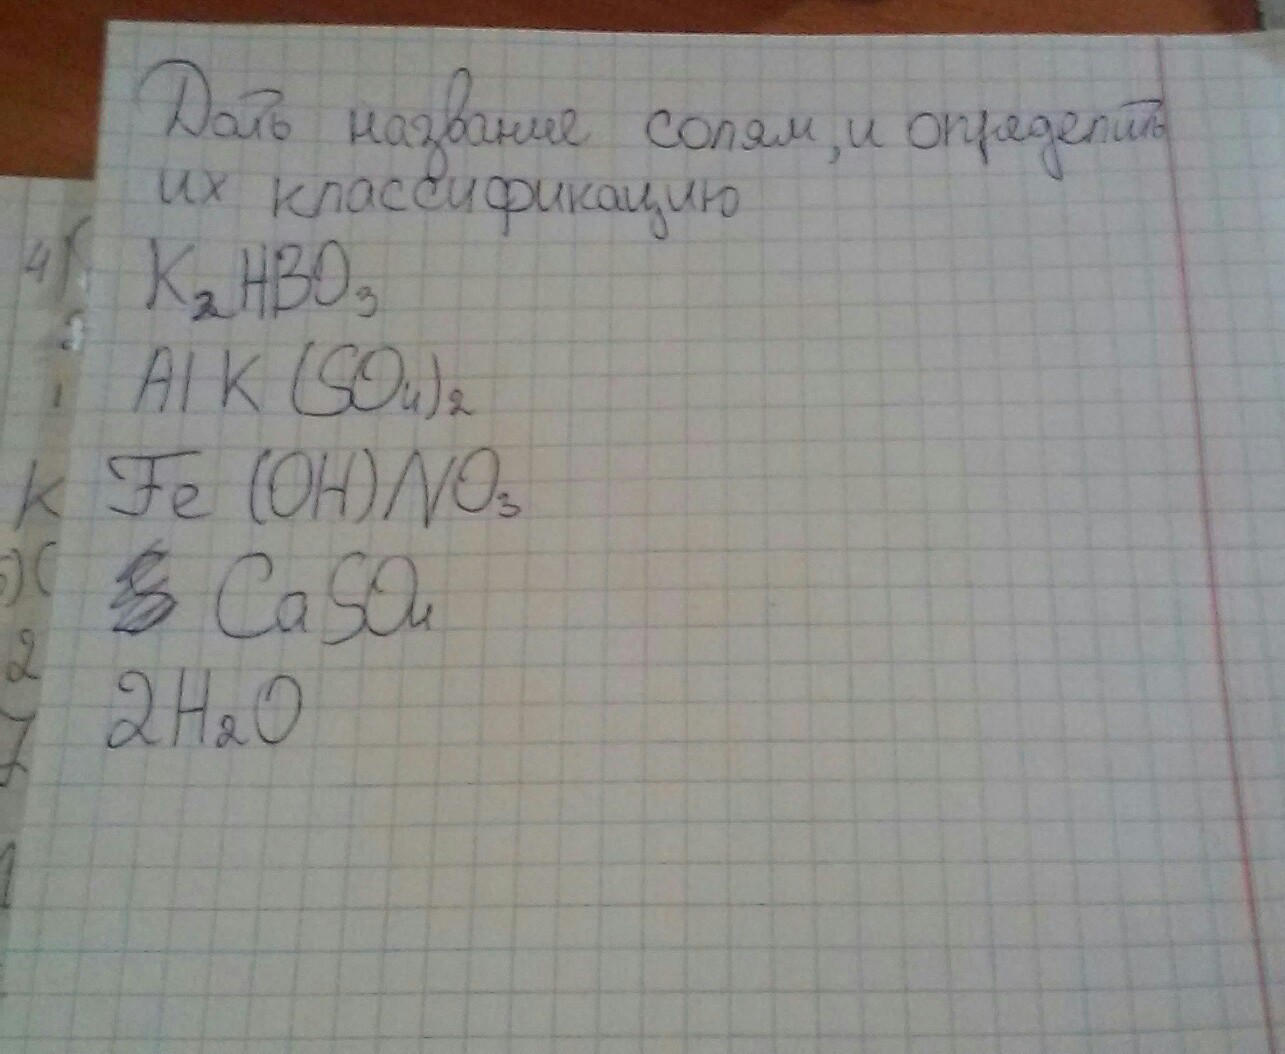 Дать название солям, и определить
их классификацию
K₂HBO₃
AlK(SO₄)₂
Fe(OH)NO₃
CaSO₄
2H₂O